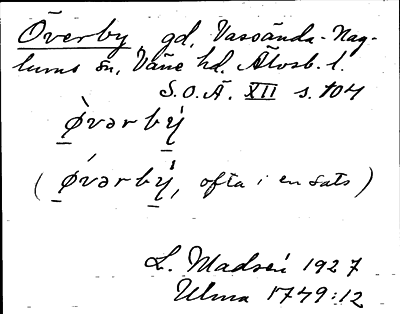 Överby, gd, Vassända-Nag-
lums sn, Väne hd. Älvsb. l.
S.O.Ä. XII s. 104
ø̀vərbý
(ǿvərbý, ofta i en sats)
L. Madsén 1927
Ulma 1749:12